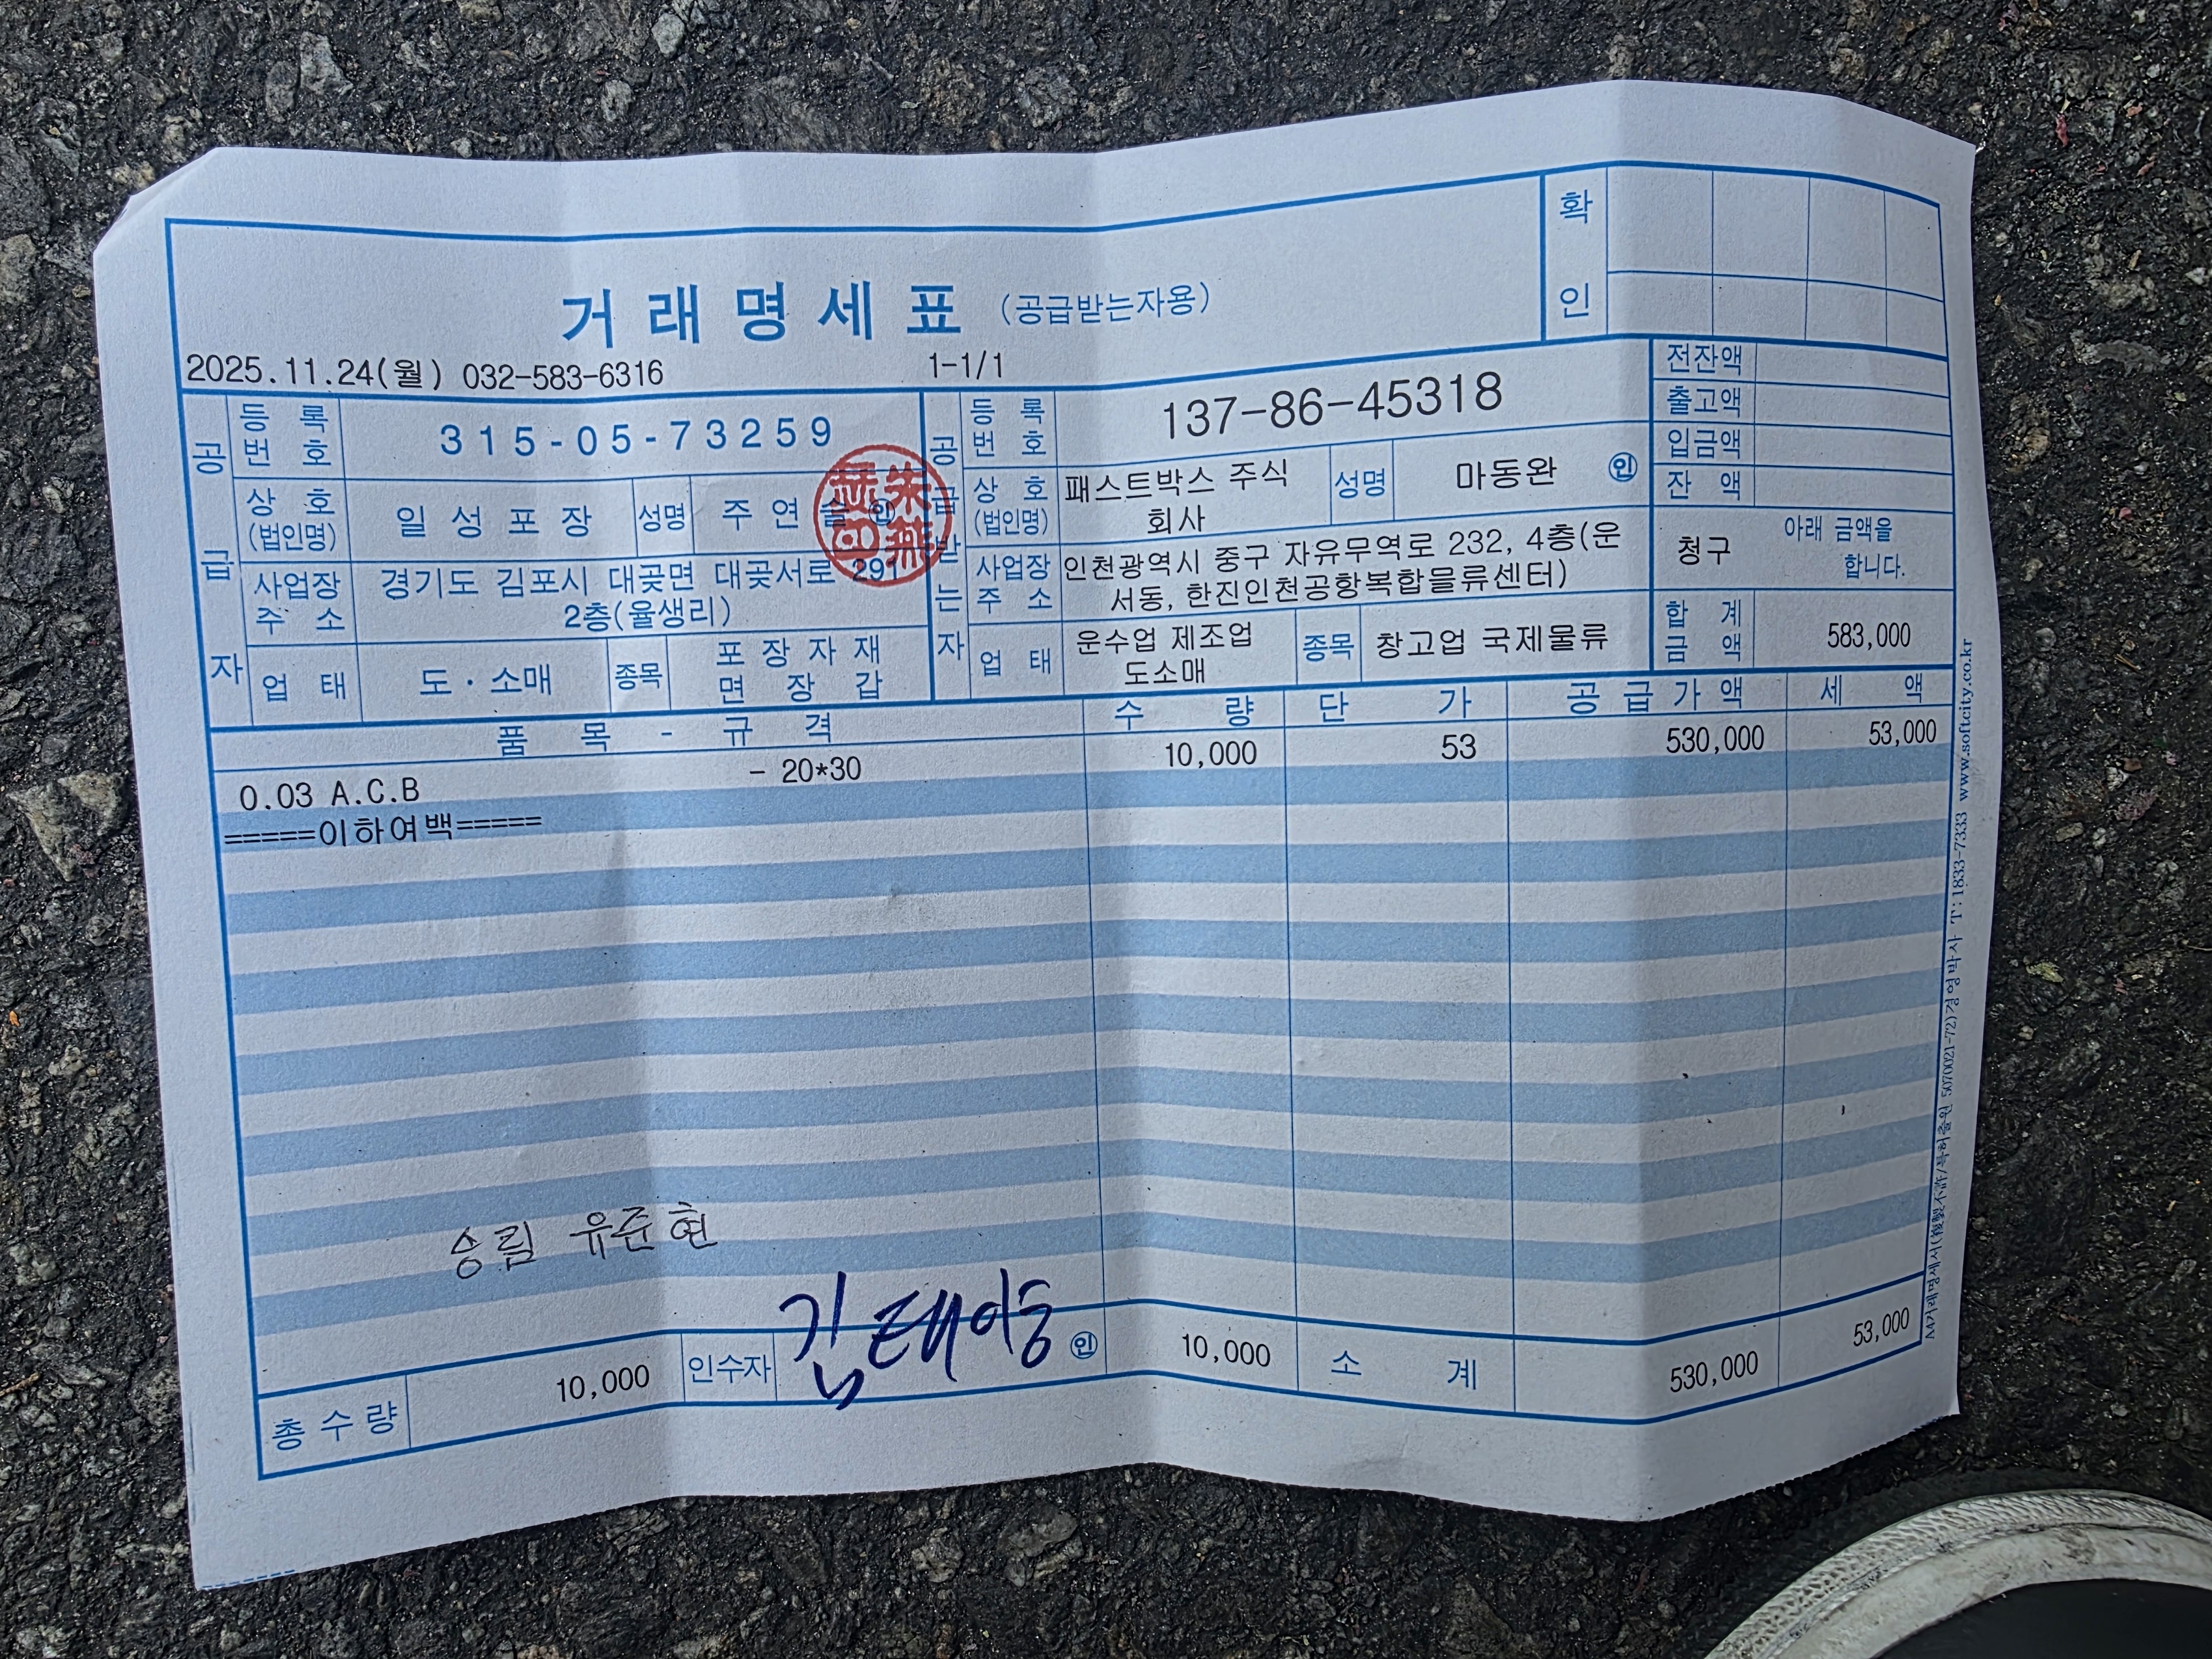 확인
거래명세표 (공급받는자용)
2025.11.24(월) 032-583-6316 1-1/1
공급자
등록번호 315-05-73259
상호(법인명) 일성포장 성명 주연 인
사업장주소 경기도 김포시 대곶면 대곶서로 291
2층(율생리)
업태 도·소매 종목 포장자재
면장갑
공급받는자
등록번호 137-86-45318
상호(법인명) 패스트박스 주식
회사
성명 마동완 인
사업장주소 인천광역시 중구 자유무역로 232, 4층(운
서동, 한진인천공항복합물류센터)
업태 운수업 제조업
도소매
종목 창고업 국제물류
전잔액
출고액
입금액
잔액
청구 아래 금액을
합니다.
합계금액 583,000
품목 - 규격 수량 단가 공급가액 세액
0.03 A.C.B - 20*30 10,000 53 530,000 53,000
=====이하여백=====
승림 유준현
총수량 10,000 인수자 김태이 인 10,000 소계 530,000 53,000
A4거래명세서(複製不許/특허출원 5070021-72)경영박사 T:1833-7333 www.softcity.co.kr